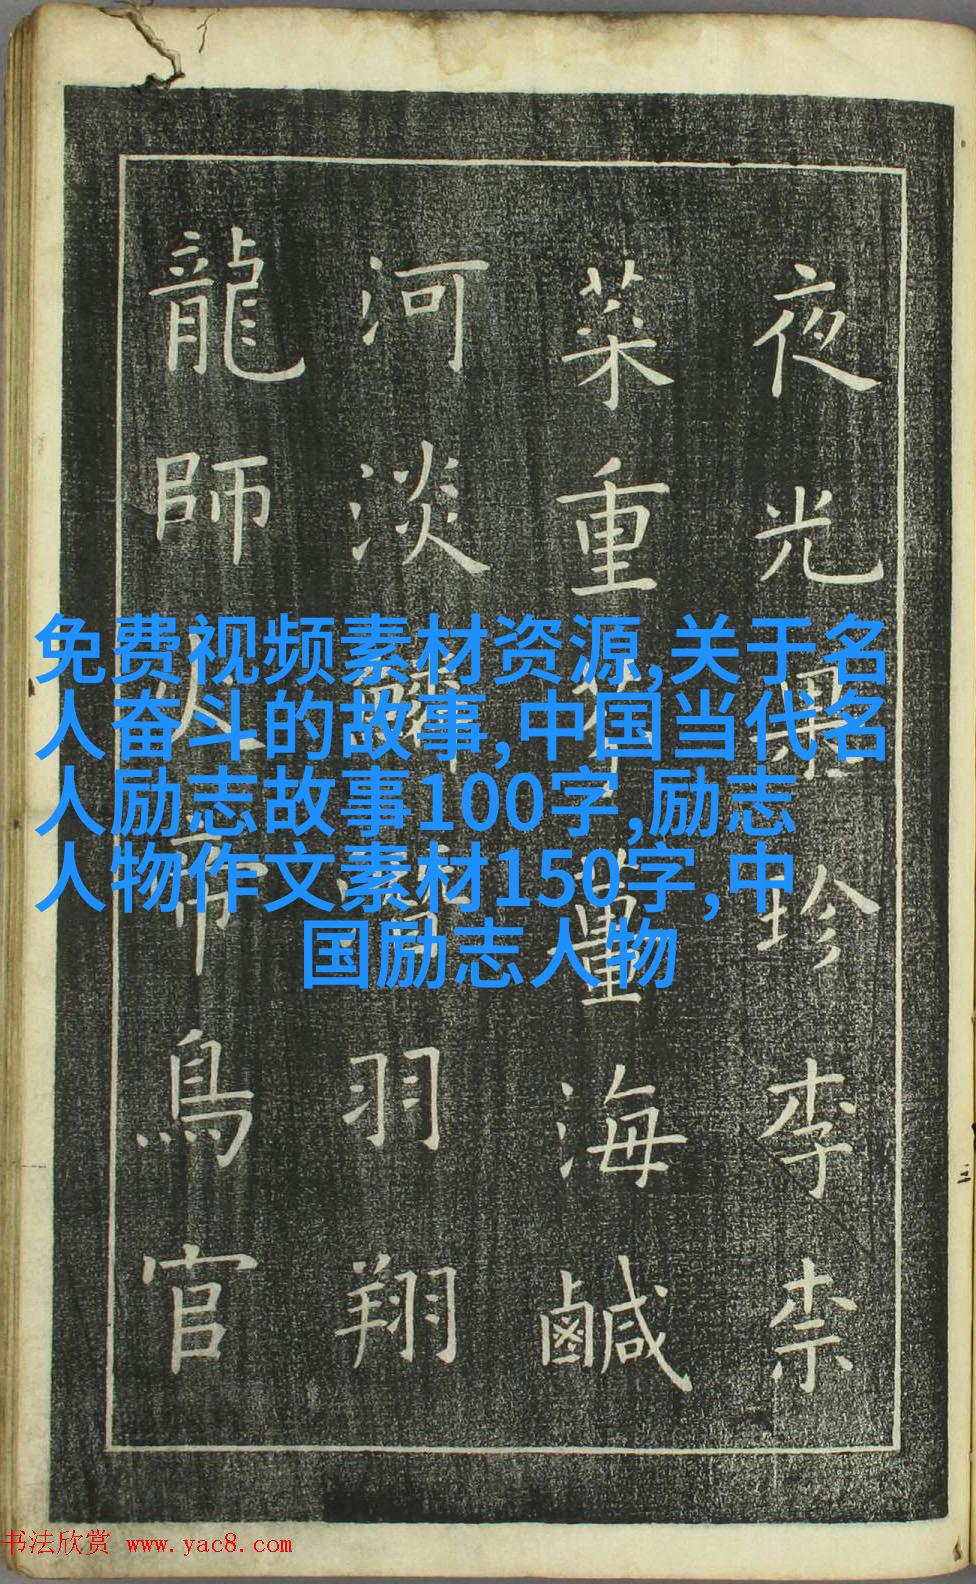 夜光果珍李柰
菜重芥薑海鹹
河淡鱗潛羽翔
龍師火帝鳥官
免费视频素材资源,关于名
人奋斗的故事,中国当代名
人励志故事100字,励志
人物作文素材150字,中
国励志人物
书法欣赏 www.yac8.com